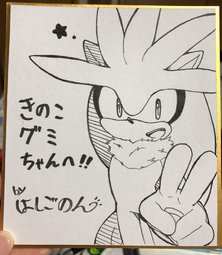 きのこ
グミ
ちゃんへ!!
by
はしごのん